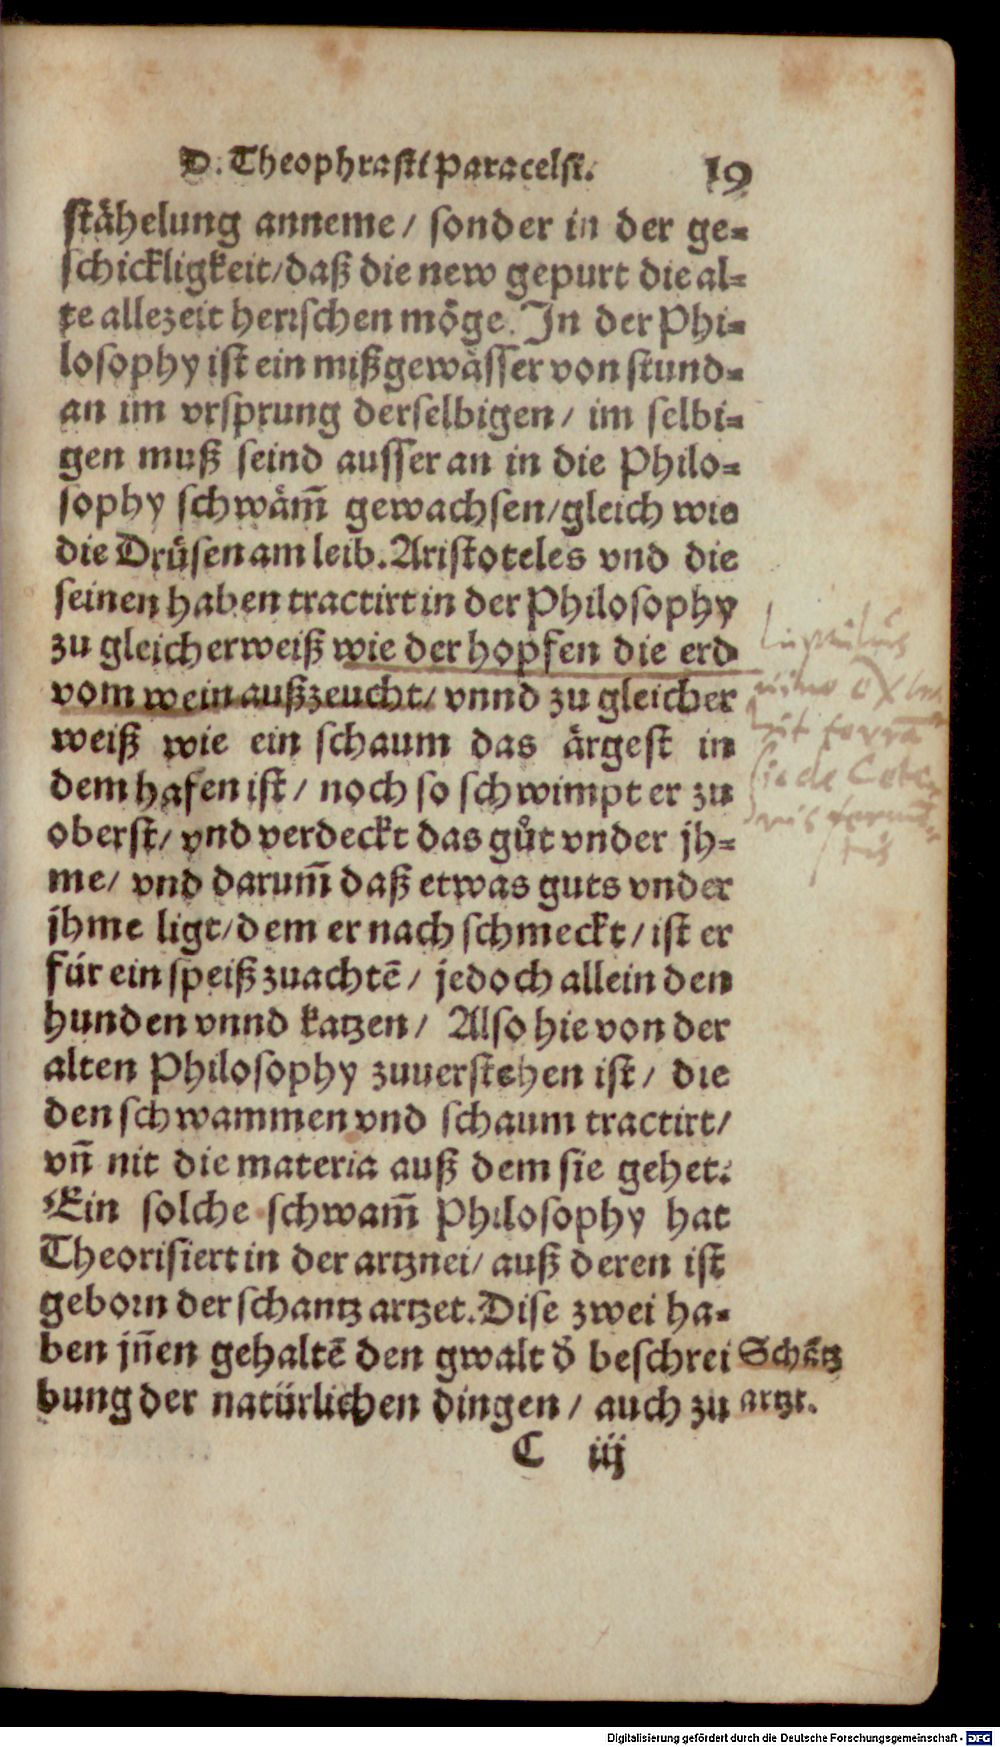 D. Theophrasti Paracelsi. 19
stähelung anneme/ sonder in der ge-
schickligkeit/daß die new gepurt die al-
te allezeit herrschen möge. In der Phi-
losophy ist ein mißgewässer von stund-
an im vrsprung derselbigen/ im selbi-
gen muß seind ausser an in die Philo-
sophy schwäm̃ gewachsen/gleich wie
die Drüsen am leib. Aristoteles vnd die
seinen haben tractirt in der Philosophy
zu gleicherweiß wie der hopfen die erd
vom wein außzeucht/ vnnd zu gleicher
weiß wie ein schaum das ärgest in
dem hafen ist/ noch so schwimpt er zu
oberst/ vnd verdeckt das gůt vnder jh-
me/ vnd darum̃ daß etwas guts vnder
jhme ligt/dem er nach schmeckt/ist er
für ein speiß zuachtẽ/ jedoch allein den
hunden vnnd katzen/ Also hie von der
alten Philosophy zuuerstehen ist/ die
den schwammen vnd schaum tractirt/
vñ nit die materia auß dem sie gehet.
Ein solche schwam̃ Philosophy hat
Theorisiert in der artznei/ auß deren ist
geborn der schantz artzet. Dise zwei ha-
ben jñen gehaltẽ den gwalt d̾ beschrei
bung der natürlichen dingen/ auch zu
Schãtz
artzt.
C iij
Digitalisierung gefördert durch die Deutsche Forschungsgemeinschaft - DFG